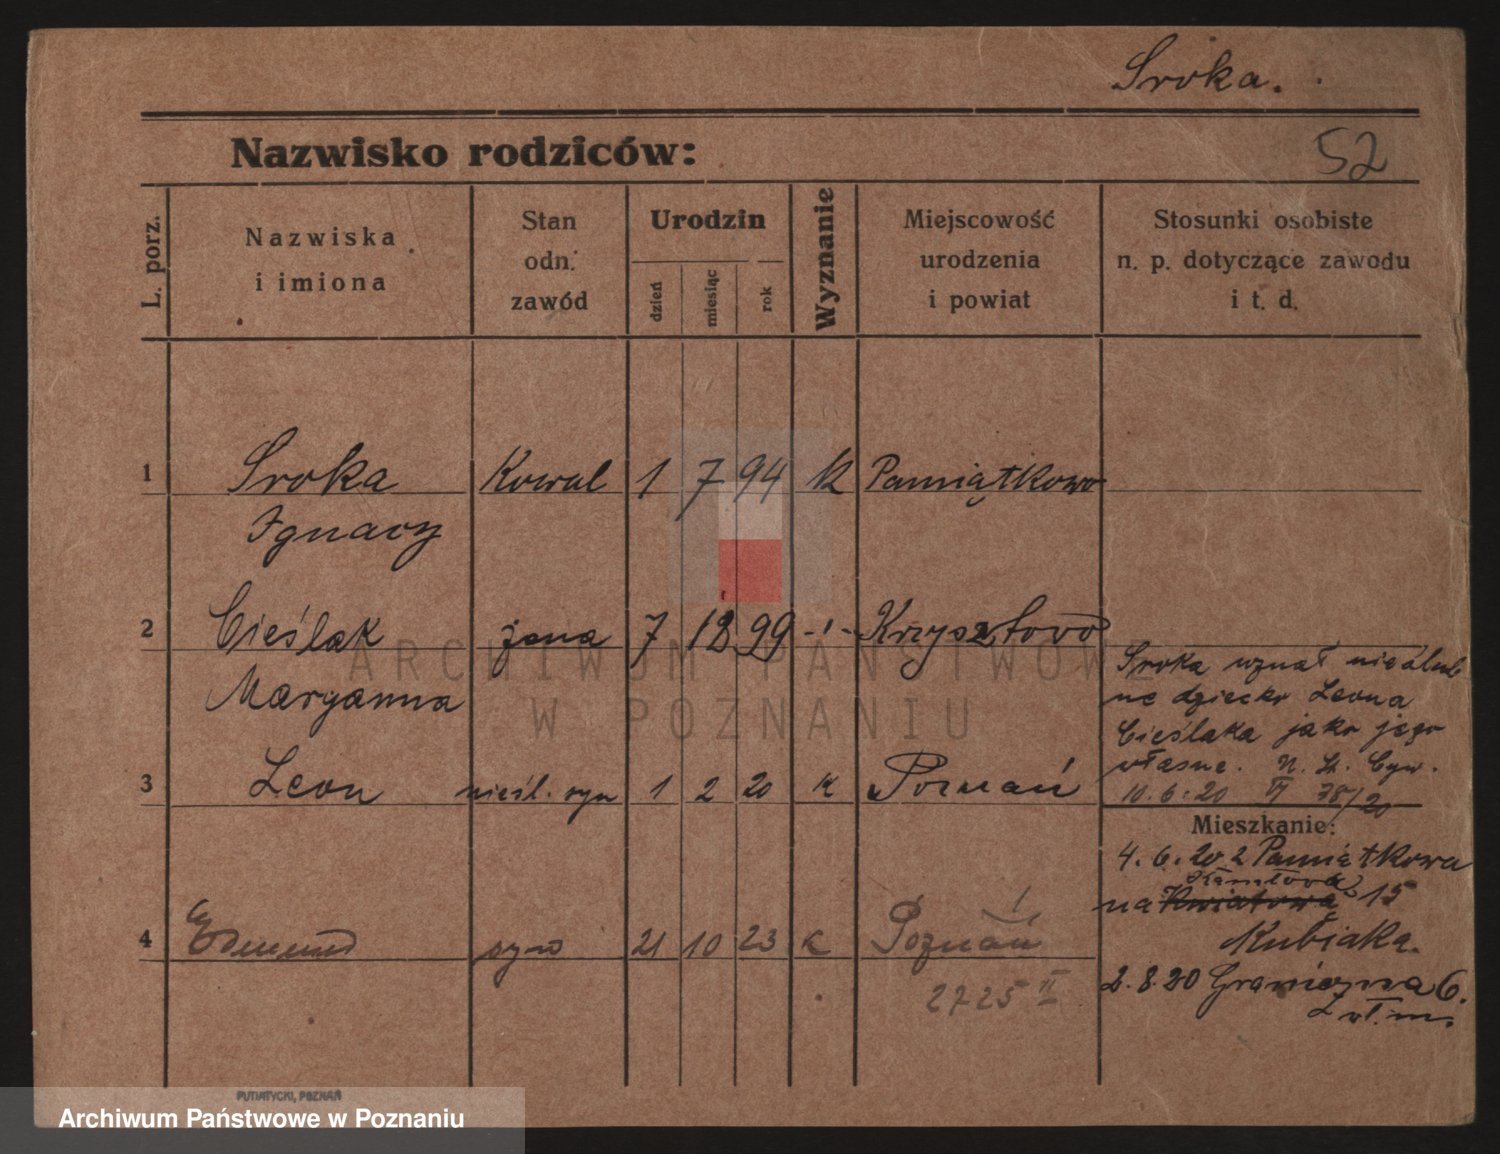 Sroka.
Nazwisko rodziców:
52
L. porz.
Nazwiska
i imiona
Stan
odn.
zawód
Urodzin
dzień
miesiąc
rok
Wyznanie
Miejscowość
urodzenia
i powiat
Stosunki osobiste
n. p. dotyczące zawodu
i t. d.
1 Sroka Kowal 1 7 94 k Pamiątkowo
Ignacy
2 Cieślak żona 7 12 99 -"- Krzysztowo
Maryanna
3 Leon nieśl. syn 1 2 20 k Poznań
Sroka uznał nieślub
ne dziecko Leona
Cieślaka jako jego
własne. U. St. Cyw.
10.6.20 VI 78/20
Mieszkanie:
4.6.20 z Pamiątkowa
na Kwiatową 15
Kubiaka.
2.8.20 Graniczna 6.
wł. m.
4 Edmund syn 21 10 23 k Poznań
2725 II
ARCHIWUM PAŃSTWOWE
W POZNANIU
PUTIATYCKI, POZNAŃ
Archiwum Państwowe w Poznaniu